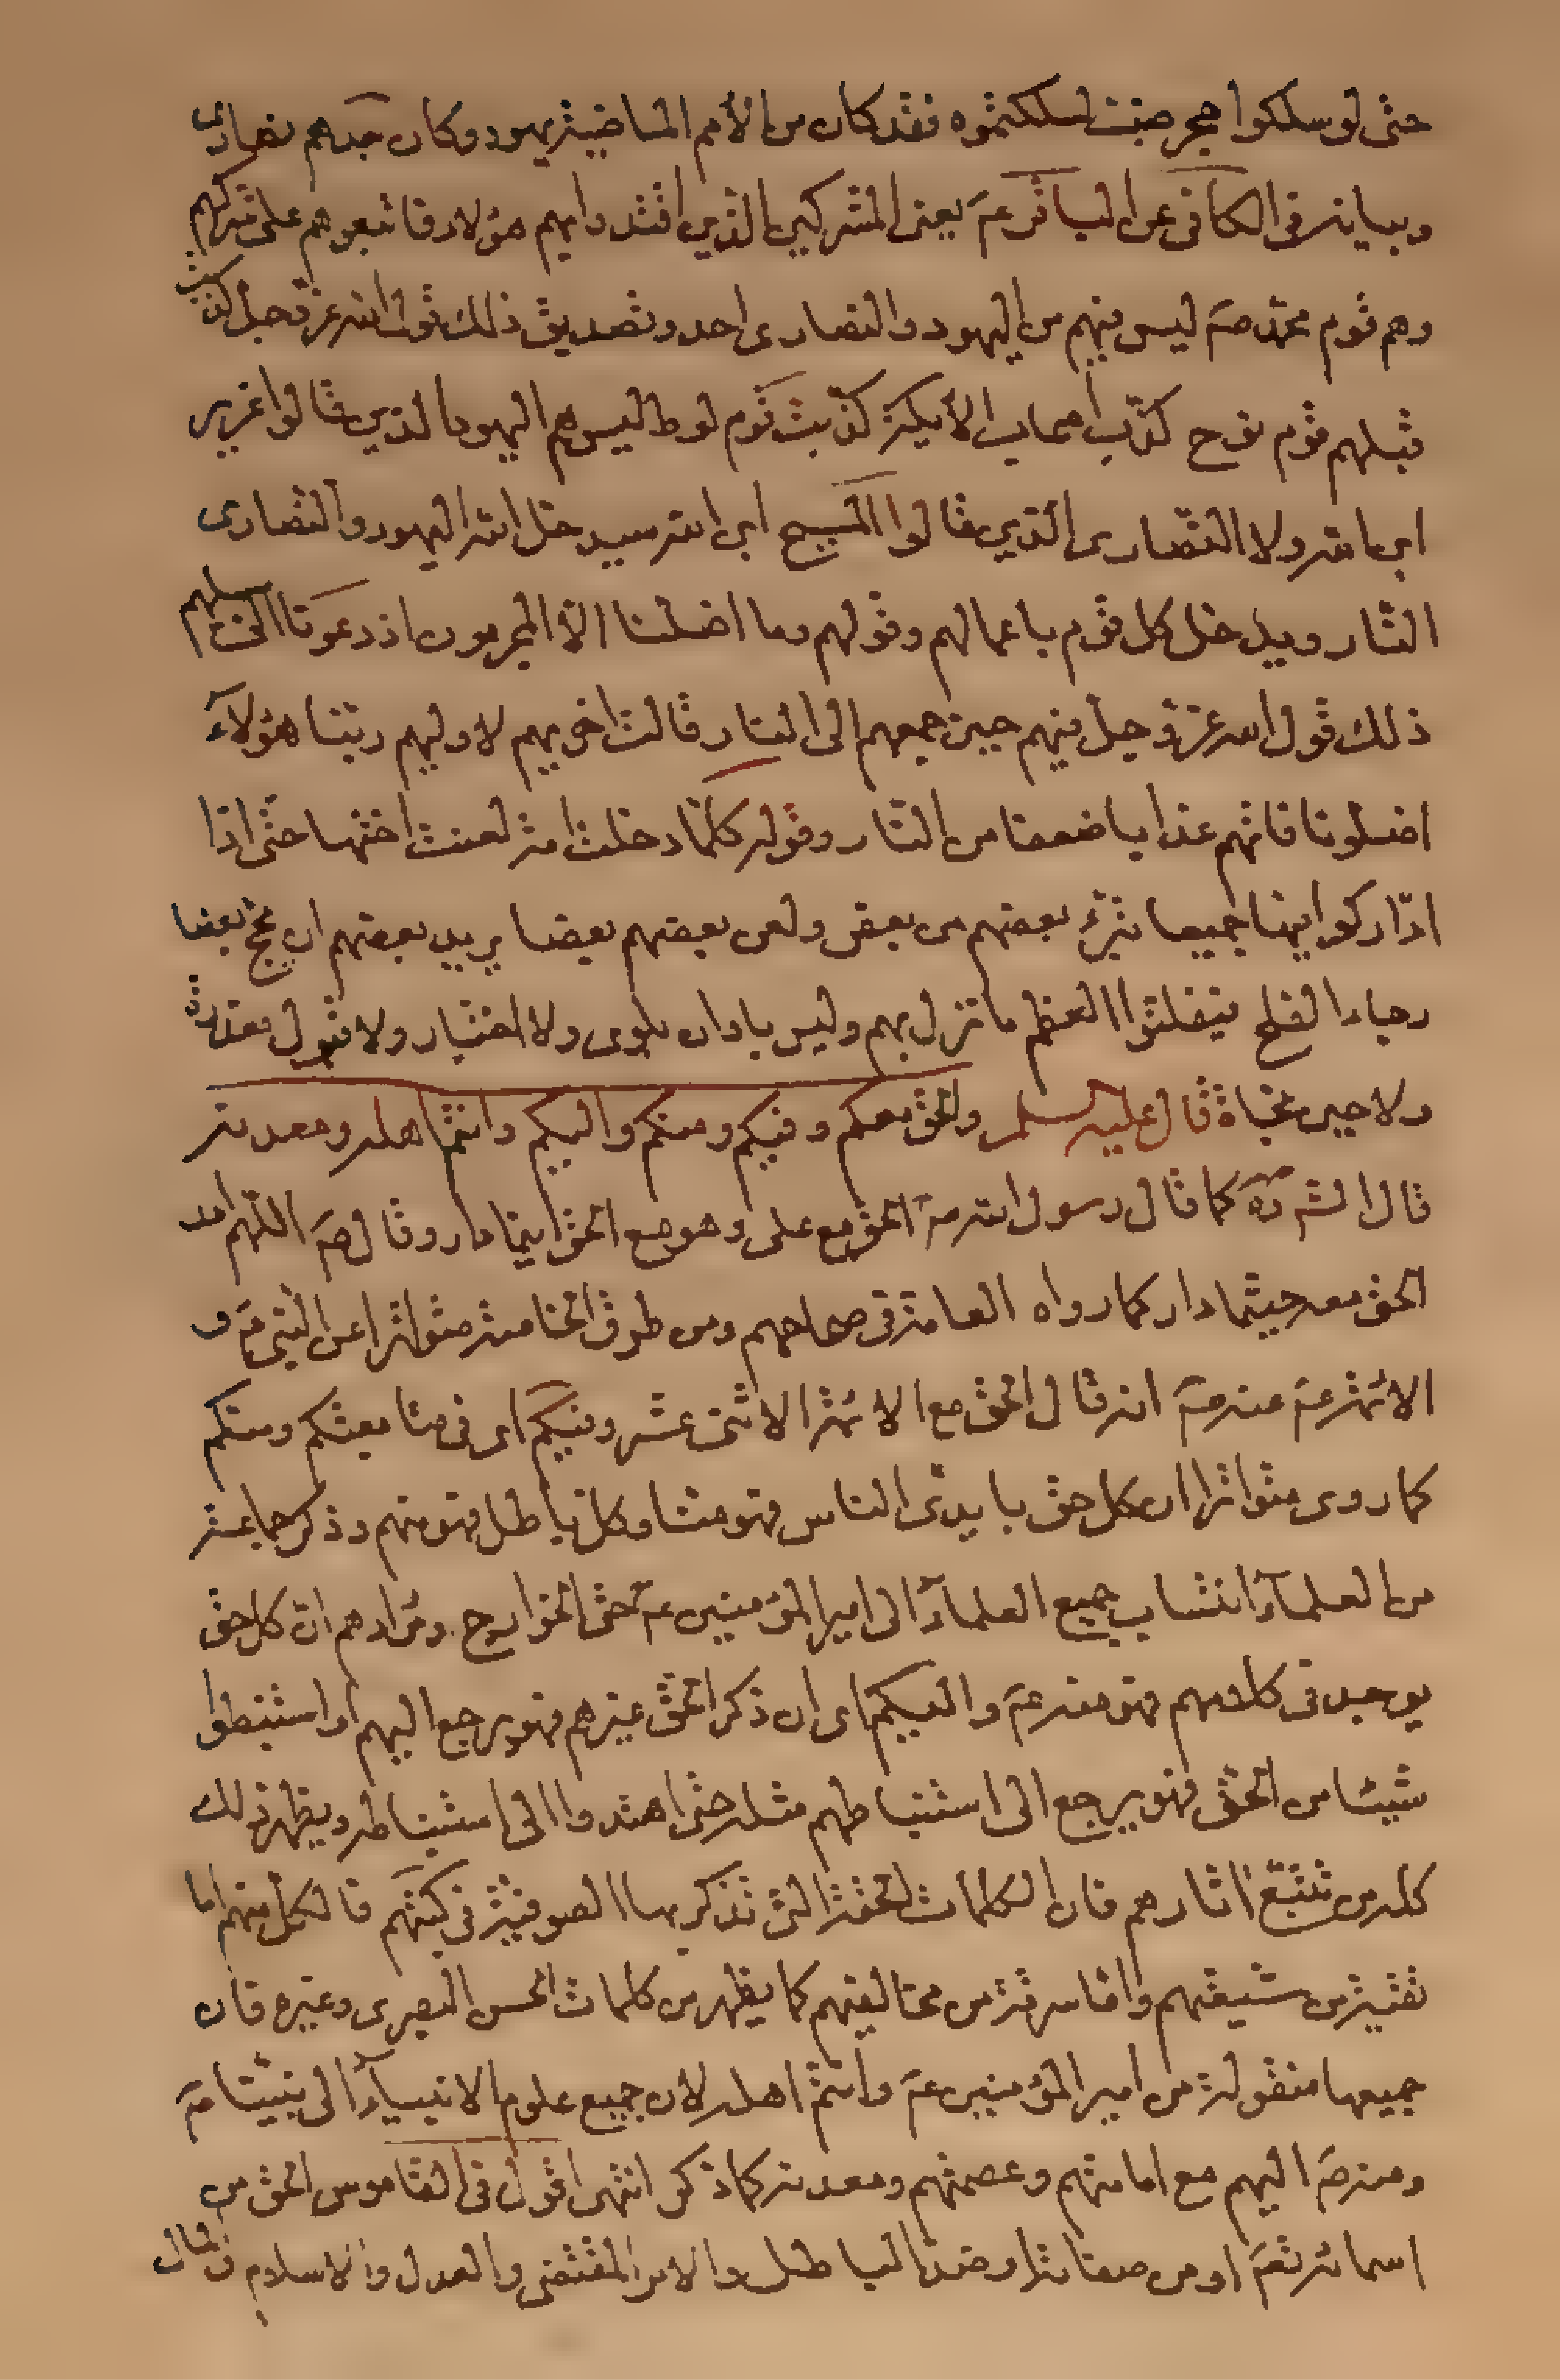 حتى لو سلكوا حجر ضب لسلكتموه فقد كان من الأمم الماضية يهود وكان جدهم نصارى
وبيانه في الكافي عن الباقر عم يعنى المشركين الذين اقتدوا بهم هؤلاء فاتبعوهم على شركهم
وهم قوم محمد صم ليس فيهم من اليهود والنصارى احد وتصديق ذلك قول الله عز وجل كذبت
قبلهم قوم نوح كذب اصحاب الأيكة كذبت قوم لوط ليس هم اليهود الذين قالوا عزير
ابن الله ولا النصارى الذين قالوا المسيح ابن الله سيدخل الله اليهود والنصارى
النار ويدخل كل قوم باعمالهم وقولهم وما اضلنا الا المجرمون اذ دعونا الى سبيلهم
ذلك قول الله عز وجل فيهم حين جمعهم الى النار قالت اخريهم لاوليهم ربنا هؤلاء
اضلونا فاتهم عذابا ضعفا من النار وقوله كلما دخلت امة لعنت اختها حتى اذا
ادّاركوا فيها جميعا تبرء بعضهم من بعض ولعن بعضهم بعضا يريد بعضهم ان يحج بعضا
رجاء الفلج فيفلتوا العظم ما نزل بهم وليس باوان بلوى ولا اختبار ولا قبول معذرة
ولا حين نجاة قال عليه السلم والحق معكم وفيكم ومنكم واليكم وانتم اهله ومعدنه
قال الشـ ره كما قال رسول الله صم الحق مع على وهو مع الحق اينما دار وقال صم اللهم ادر
الحق معه حيثما دار كما رواه العامة في صحاحهم ومن طرق الخاصة متواترا عن النبي صم و
الائمة عم عنه صم انه قال الحق مع الائمة الاثنى عشر وفيكم اى في متابعتكم ومنكم
كما روى متواترا ان كل حق بايدى الناس فهو منا وكل باطل فهو منهم وذكر جماعة
من العلماء انتساب جميع العلماء الى امير المؤمنين عم حتى الخوارج ومرادهم ان كل حق
يوجد في كلامهم فهو منه عم واليكم اى ان ذكر الحق غيرهم فهو يرجع اليهم او استنبطوا
شيئا من الحق فهو يرجع الى استنباطهم مثله حتى اهتدوا الى استنباطه ويظهر ذلك
كله من تتبع اثارهم فان الكلمات الحقة التى تذكرها الصوفية في كتبهم فالكل منهم اما
تقية من شيعتهم واما سرقة من مخالفيهم كما يظهر من كلمات الحسن البصرى وغيره فان
جميعها منقولة من امير المؤمنين عم وانتم اهله لان جميع علوم الانبياء الى نبينا صم
ومنه صم اليهم مع امامتهم وعصمتهم ومعدنه كما ذكر انتهى اقول في القاموس الحق من
اسمائه تعم او من صفاته او ضد الباطل والامر المقتضى والعدل والاسلام والمال